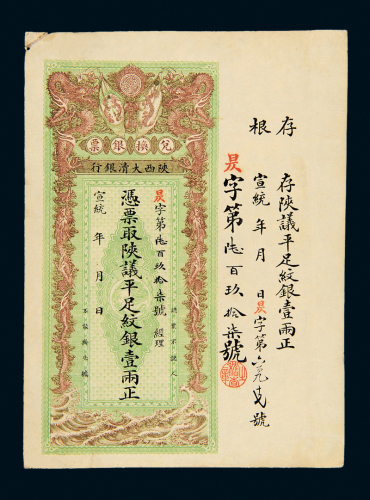 存根
存陝議平足紋銀壹兩正
宣統 年 月 日 昃字第六九七號
昃字第陸百玖拾柒號
兌換銀票
陝西大清銀行
昃字第陸百玖拾柒號 經理
憑票取陝議平足紋銀壹兩正
宣統 年 月 日
認票不認人